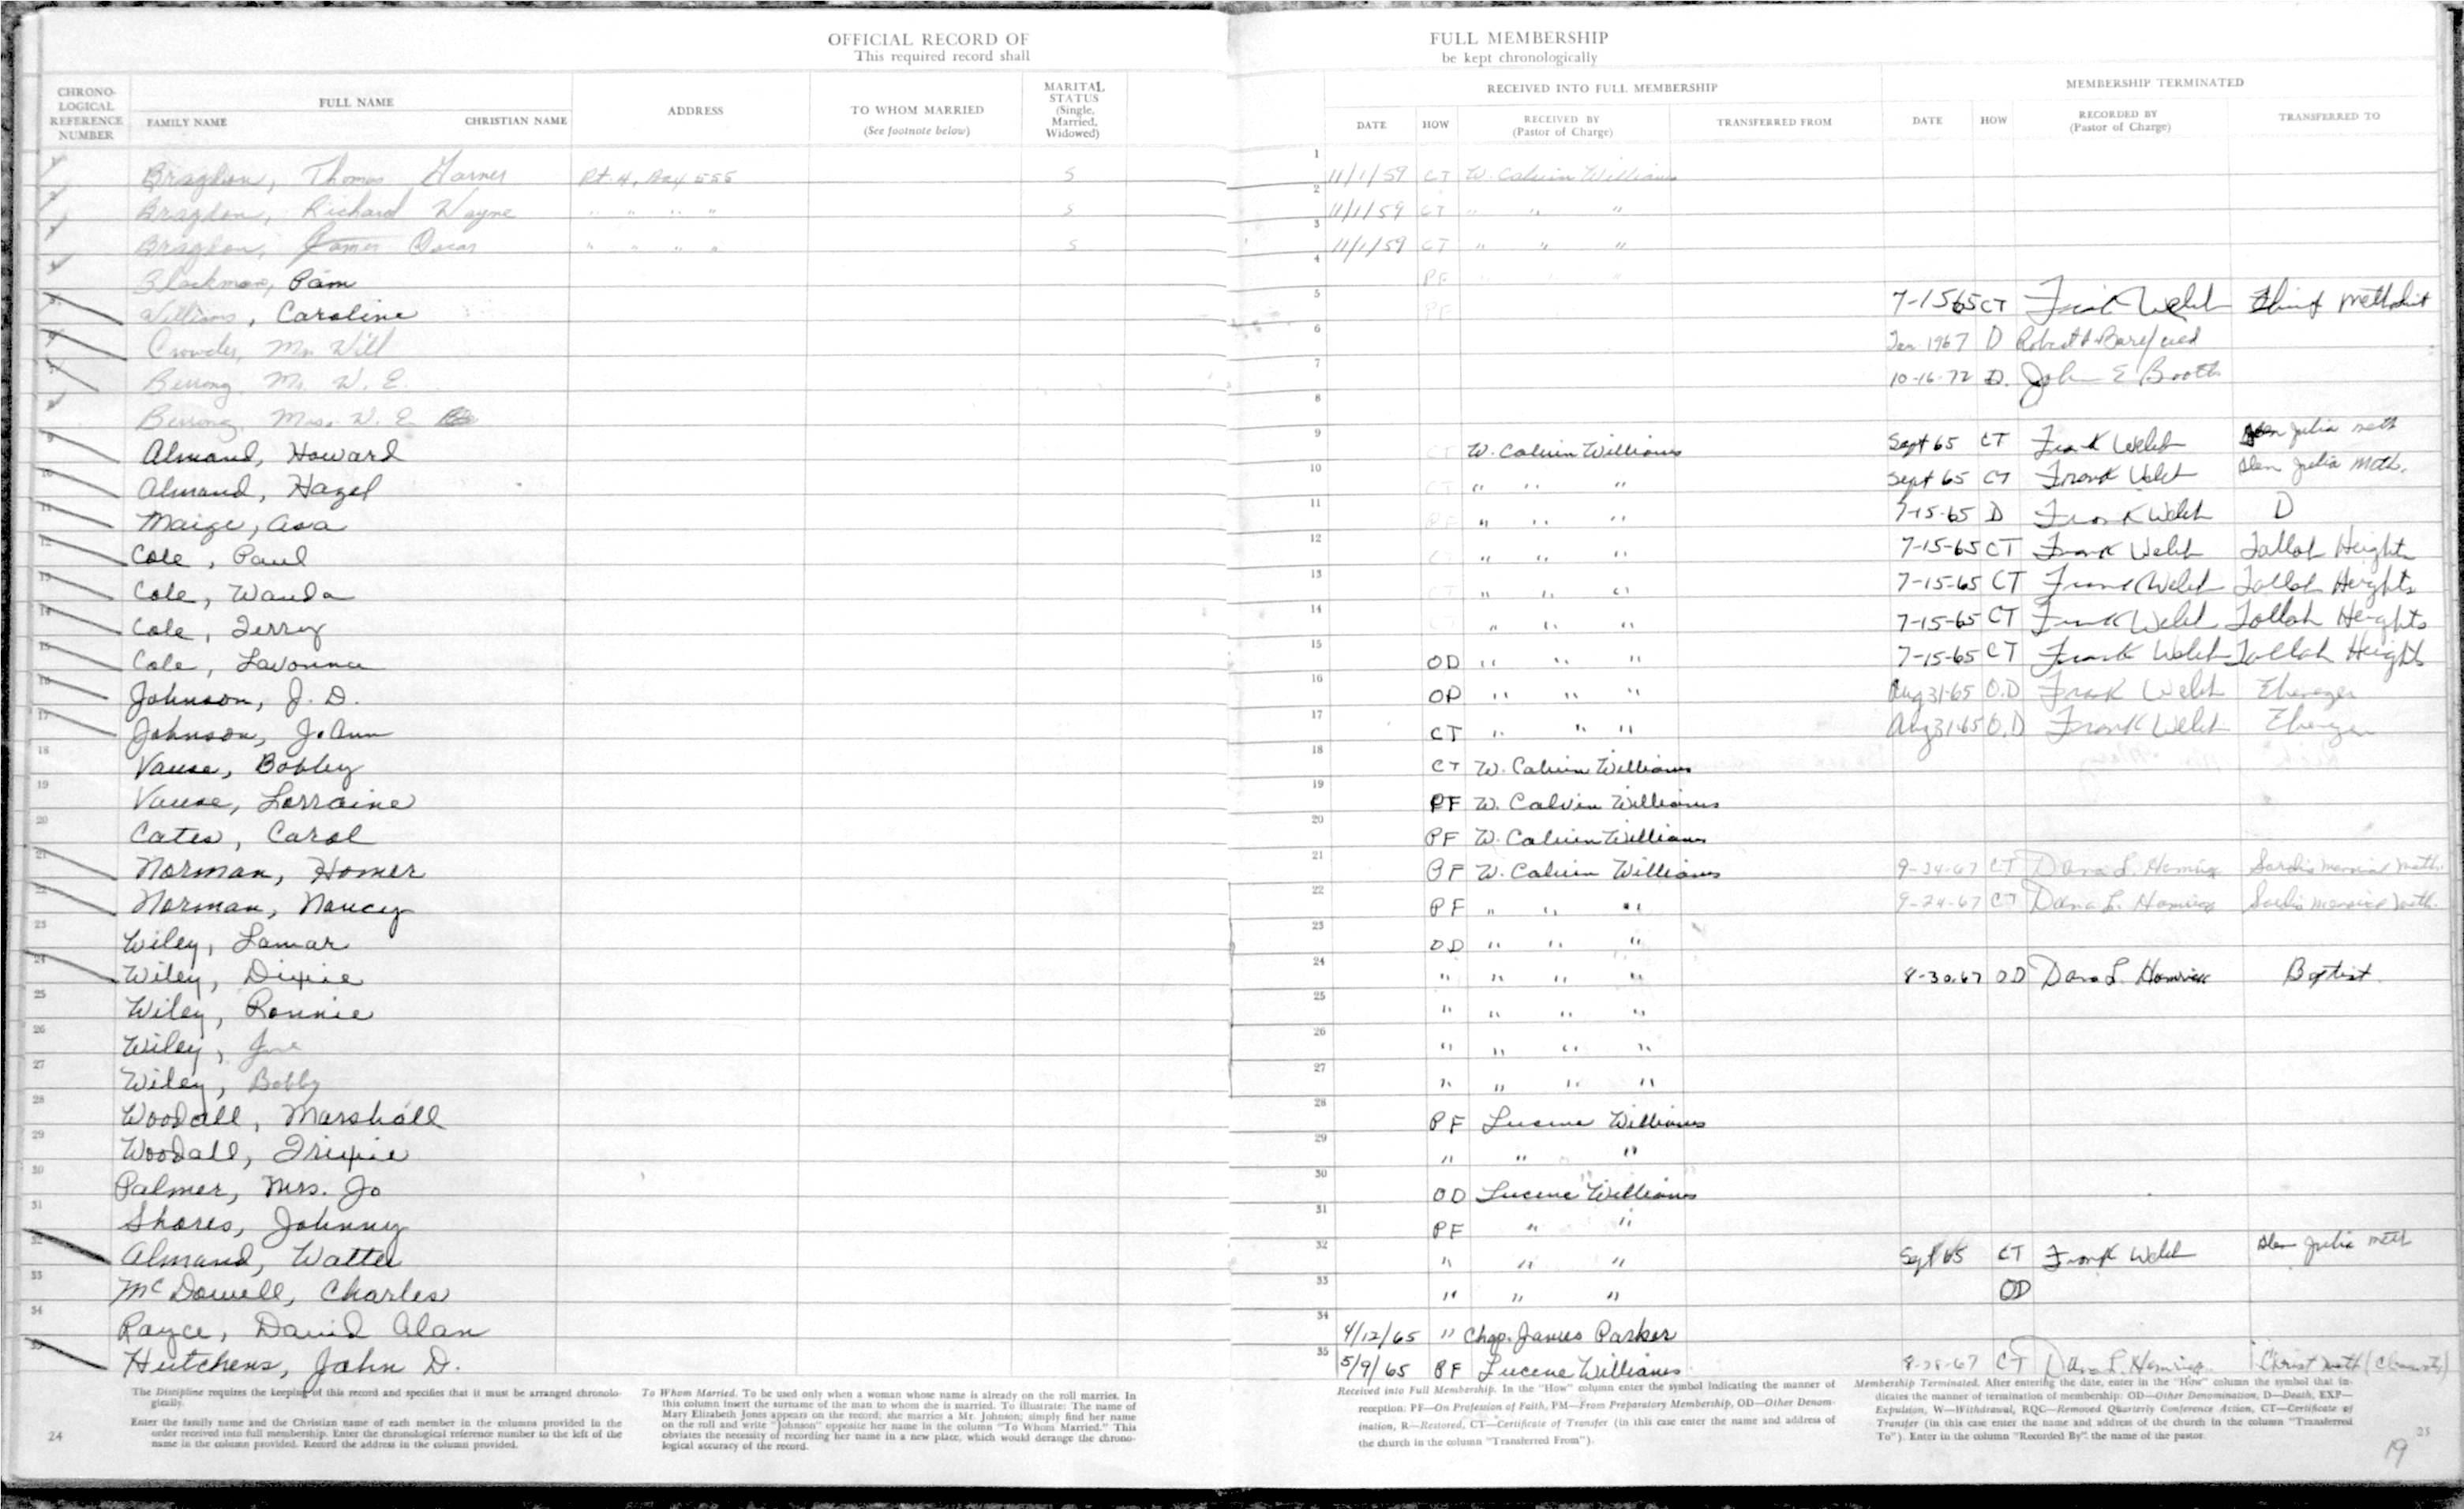 OFFICIAL RECORD OF FULL MEMBERSHIP
This required record shall be kept chronologically
CHRONO-LOGICAL REFERENCE NUMBER FULL NAME FAMILY NAME CHRISTIAN NAME ADDRESS TO WHOM MARRIED (See footnote below) MARITAL STATUS (Single, Married, Widowed)
RECEIVED INTO FULL MEMBERSHIP MEMBERSHIP TERMINATED
DATE HOW RECEIVED BY (Pastor of Charge) TRANSFERRED FROM DATE HOW RECORDED BY (Pastor of Charge) TRANSFERRED TO
1 Bragdon, Thomas Garner Rt. 4, Box 555 S 11/1/59 CT W. Calvin Williams
2 Bragdon, Richard Wayne " " " " S 11/1/59 CT " " "
3 Bragdon, James Oscar " " " " S 11/1/59 CT " " "
4 Blackmon, Pam PF " " "
5 Williams, Caroline PF 7-15-65 CT Frank Welch Methodist
6 Crowder, Mr. Will Jan 1967 D Robert
7 Berrong, Mr. W. E. 10-16-72 D. John E Booth
8 Berrong, Mrs. W. E.
9 Almand, Howard CT W. Calvin Williams Sept 65 CT Frank Welch Glen Julia Meth
10 Almand, Hazel CT " " " Sept 65 CT Frank Welch Glen Julia Meth.
11 Maige, Asa PF " " " 7-15-65 D Frank Welch D
12 Cole, Paul CT " " " 7-15-65 CT Frank Welch Tallah Heights
13 Cole, Wanda CT " " " 7-15-65 CT Frank Welch Tallah Heights
14 Cole, Terry CT " " " 7-15-65 CT Frank Welch Tallah Heights
15 Cole, Lavonna OD " " " 7-15-65 CT Frank Welch Tallah Heights
16 Johnson, J. D. OD " " " Aug 31-65 O.D Frank Welch Ebenezer
17 Johnson, JoAnn CT " " " Aug 31-65 O.D Frank Welch Ebenezer
18 Vause, Bobby CT W. Calvin Williams
19 Vause, Lorraine PF W. Calvin Williams
20 Cates, Carol PF W. Calvin Williams
21 Norman, Homer PF W. Calvin Williams 9-24-67 CT Dana L. Hamrick Sardis Memorial Meth.
22 Norman, Nancy PF " " " 9-24-67 CT Dana L. Hamrick Sardis Memorial Meth.
23 Wiley, Lamar OD " " "
24 Wiley, Dixie " " " " 8-30-67 OD Dana L. Hamrick Baptist
25 Wiley, Ronnie " " " "
26 Wiley, " " " "
27 Wiley, Bobby " " " "
28 Woodall, Marshall PF Lucene Williams
29 Woodall, Trixie " " "
30 Palmer, Mrs. Jo OD Lucene Williams
31 Shores, Johnny PF " "
32 Almand, Walter " " " Sept 65 CT Frank Welch Glen Julia Meth
33 McDowell, Charles " " " OD
34 Rayce, David Alan 4/12/65 " Chap. James Parker
35 Hutchens, John D. 5/9/65 PF Lucene Williams 8-28-67 CT Dana L. Hamrick Christ Meth
The Discipline requires the keeping of this record and specifies that it must be arranged chronolo-
gically.
Enter the family name and the Christian name of each member in the columns provided in the
order received into full membership. Enter the chronological reference number to the left of the
name in the column provided. Record the address in the column provided.
24
To Whom Married. To be used only when a woman whose name is already on the roll marries. In
this column insert the surname of the man to whom she is married. To illustrate: The name of
Mary Elizabeth Jones appears on the record; she marries a Mr. Johnson; simply find her name
on the roll and write "Johnson" opposite her name in the column "To Whom Married." This
obviates the necessity of recording her name in a new place, which would derange the chrono-
logical accuracy of the record.
Received into Full Membership. In the "How" column enter the symbol indicating the manner of
reception: PF—On Profession of Faith, PM—From Preparatory Membership, OD—Other Denom-
ination, R—Restored, CT—Certificate of Transfer (in this case enter the name and address of
the church in the column "Transferred From").
Membership Terminated. After entering the date, enter in the "How" column the symbol that in-
dicates the manner of termination of membership: OD—Other Denomination, D—Death, EXP—
Expulsion, W—Withdrawal, RQC—Removed Quarterly Conference Action, CT—Certificate of
Transfer (in this case enter the name and address of the church in the column "Transferred
To"). Enter in the column "Recorded By" the name of the pastor.
25
19